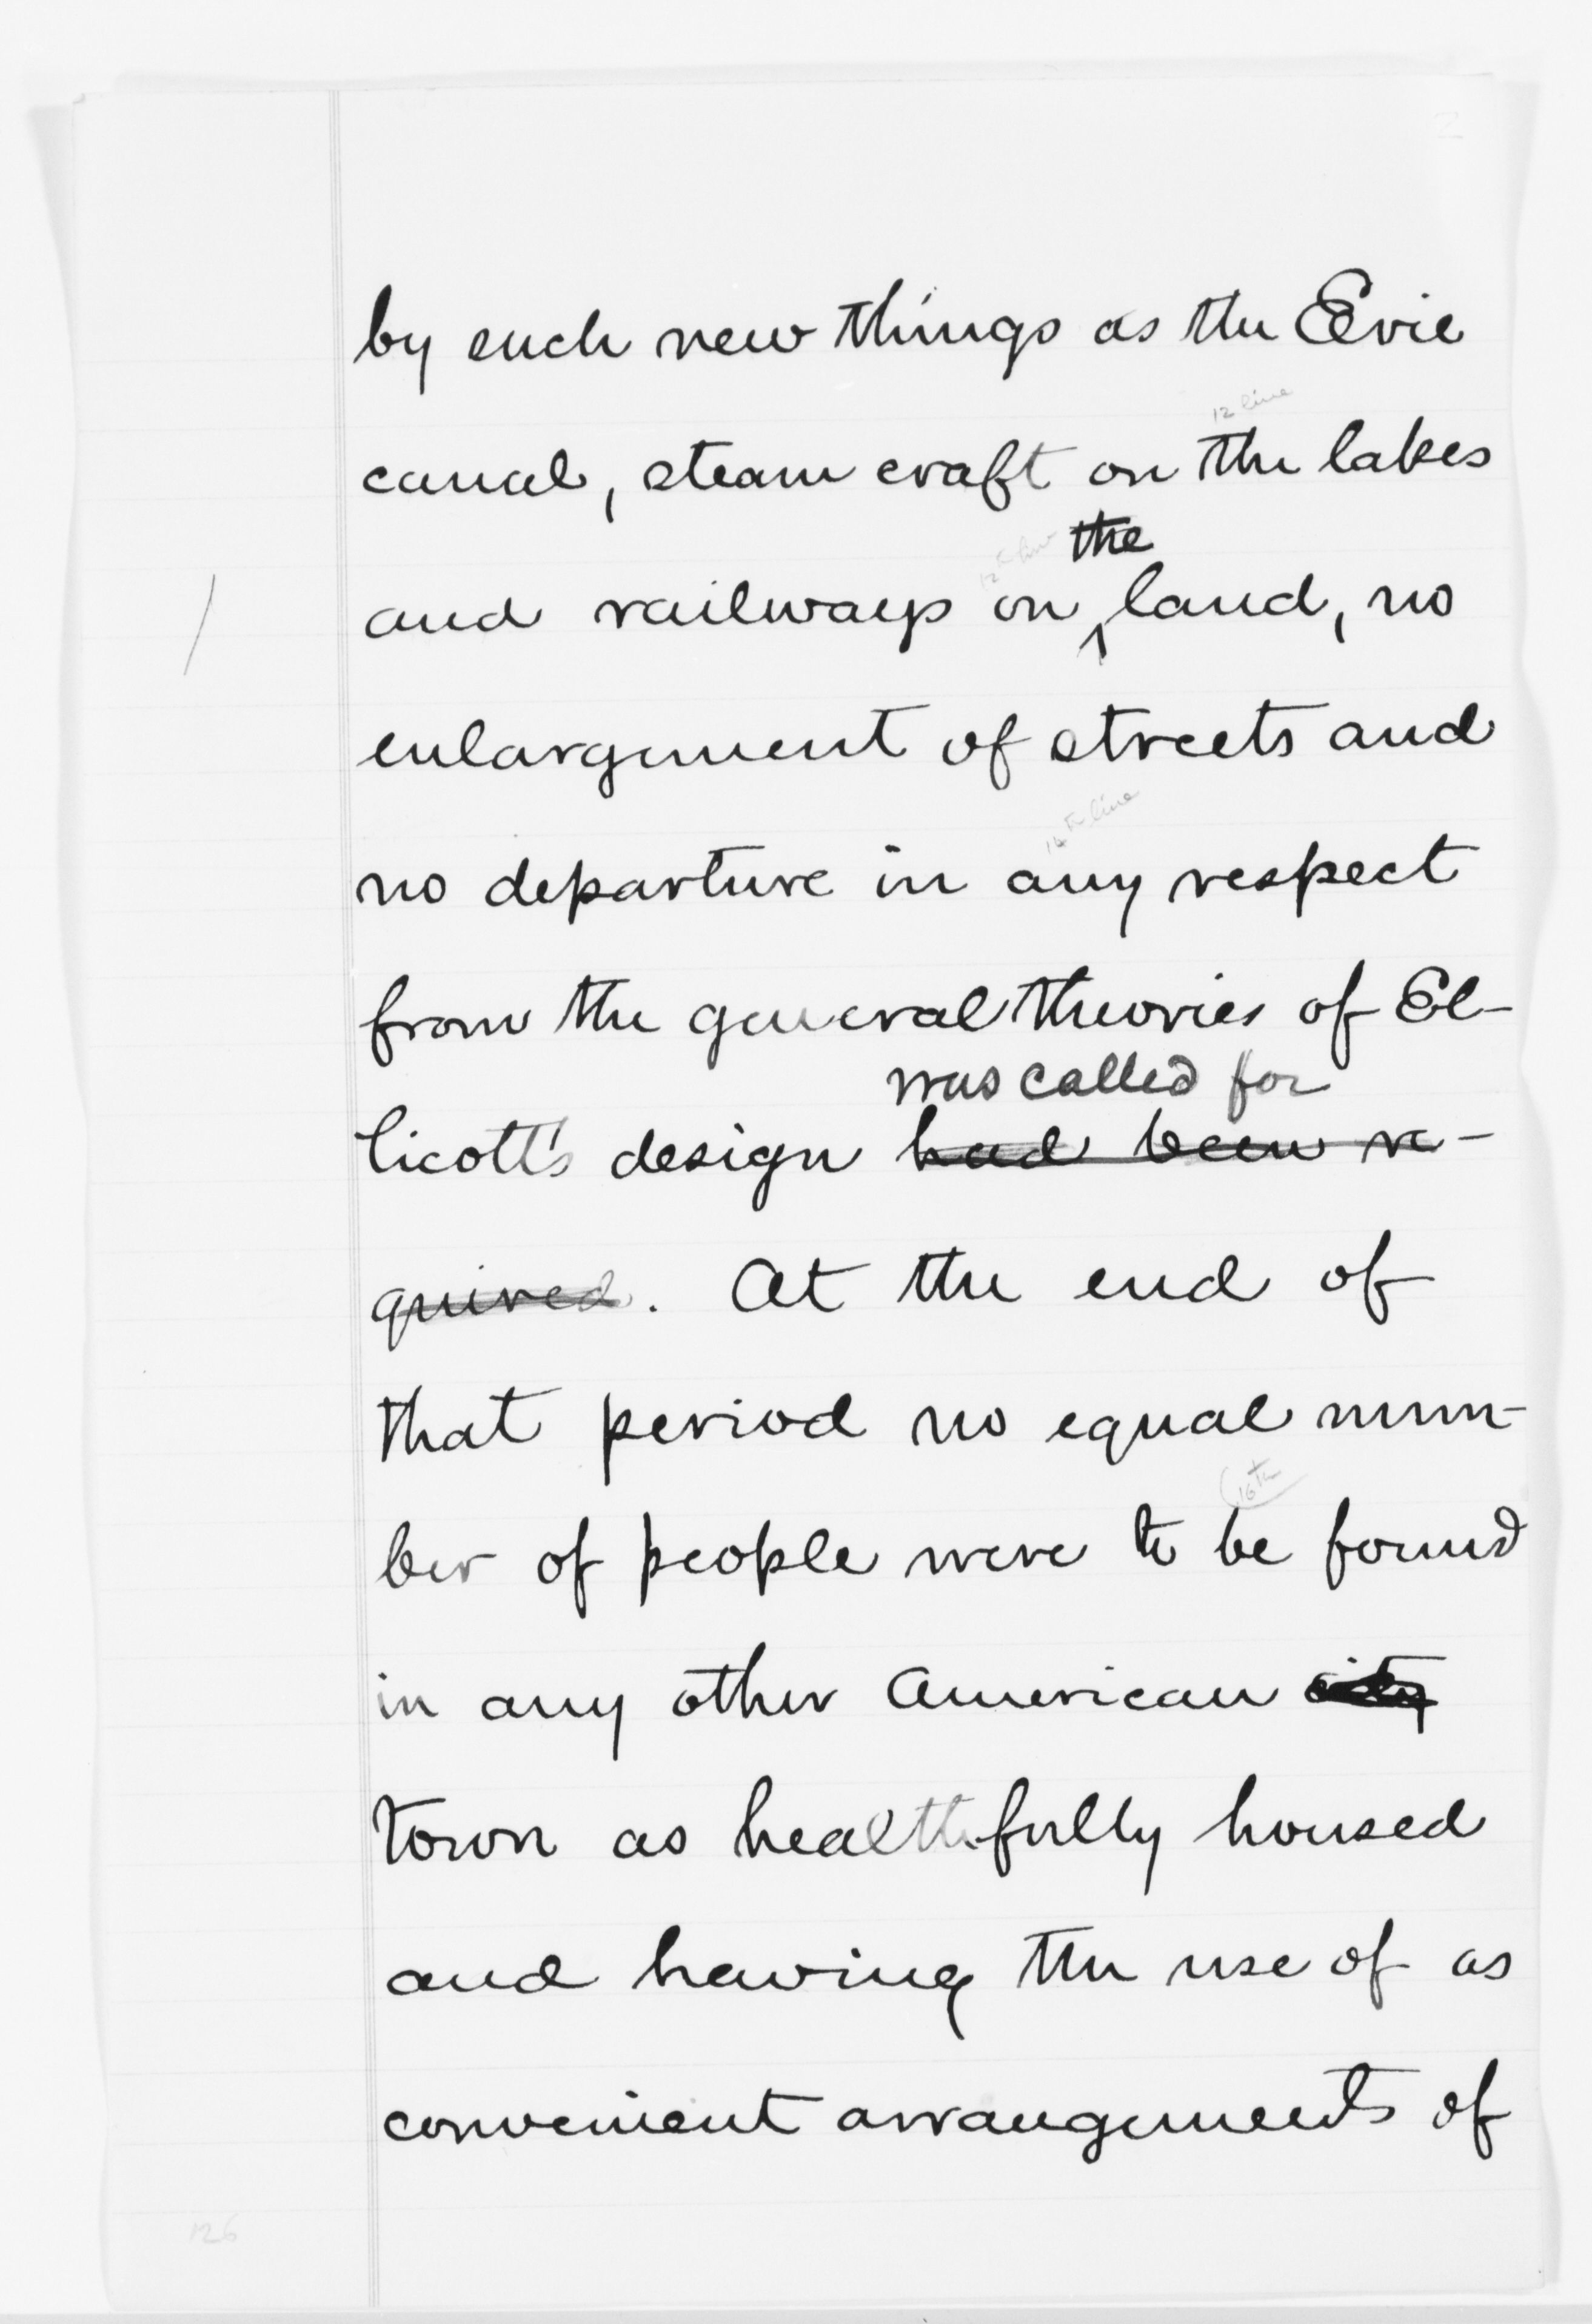 2
by such new things as the Erie
12 line
canal, steam craft on the lakes
the
and railways on land, no
enlargement of streets and
14th line
no departure in any respect
from the general theories of El-
was called for
licott's design had been re-
quired. At the end of
that period no equal num-
16th
ber of people were to be found
in any other American city
town as healthfully housed
and having the use of as
convenient arrangements of
126